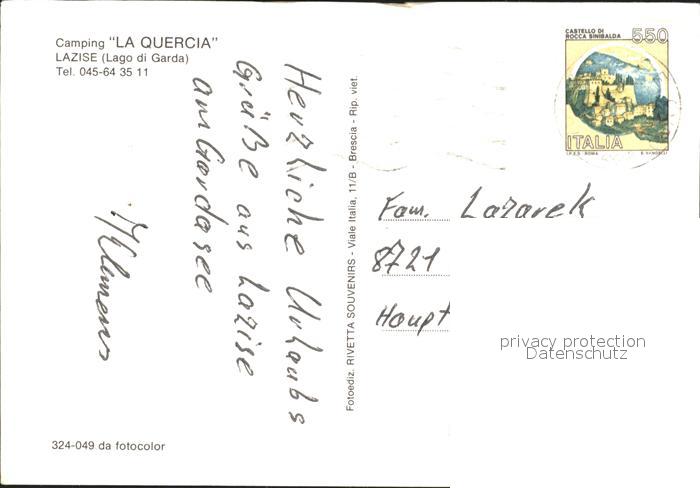 Camping "LA QUERCIA"
LAZISE (Lago di Garda)
Tel. 045-64 35 11
Herzliche Urlaubs
Grüße aus Lazise
am Gardasee
Klemens
324-049 da fotocolor
Fotoediz. RIVETTA SOUVENIRS - Viale Italia, 11/B - Brescia - Rip. viet.
CASTELLO DI
ROCCA SINIBALDA
550
ITALIA
I.P.Z.S. ROMA
Fam. Lazarek
8721
Haupt
privacy protection
Datenschutz